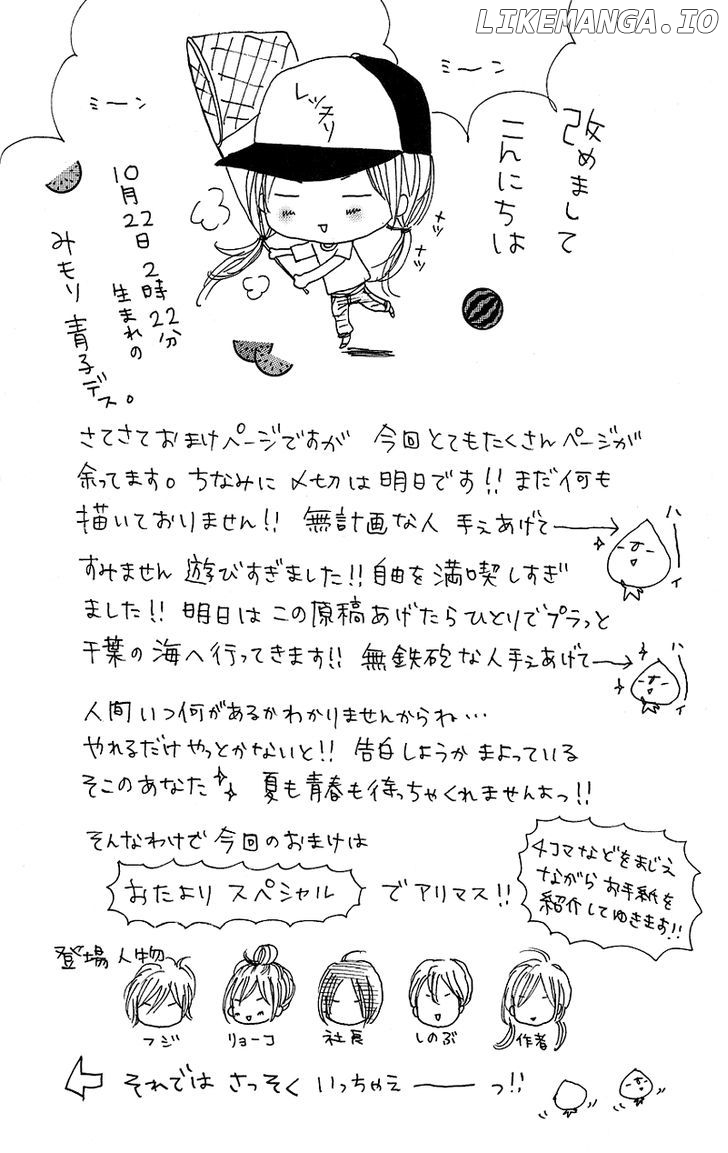 LIKEMANGA.IO
ミーン
ミーン
レッスリ
改めまして
こんにちは
ナッ
ナッ
10月22日 2時22分
生まれの
みもり青子デス。
さてさておまけページですが 今回とてもたくさんページが
余ってます。ちなみに〆切は明日です!! まだ何も
描いておりません!! 無計画な人 手ぇあげて
ハーイ
すみません 遊びすぎました!! 自由を満喫しすぎ
ました!! 明日は この原稿あげたらひとりでプラっと
千葉の海へ行ってきます!! 無鉄砲な人手ぇあげて
ハーイ
人間いつ何があるかわかりませんからね…
やれるだけやっとかないと!! 告白しようか まよっている
そこのあなた 夏も青春も待っちゃくれませんよっ!!
そんなわけで 今回のおまけは
おたより スペシャル でアリマス!!
4コマなどをまじえ
ながら お手紙を
紹介してゆきます!!
登場人物
フジ リョーコ 社長 しのぶ 作者
それでは さっそく いっちゃえーーっ!!